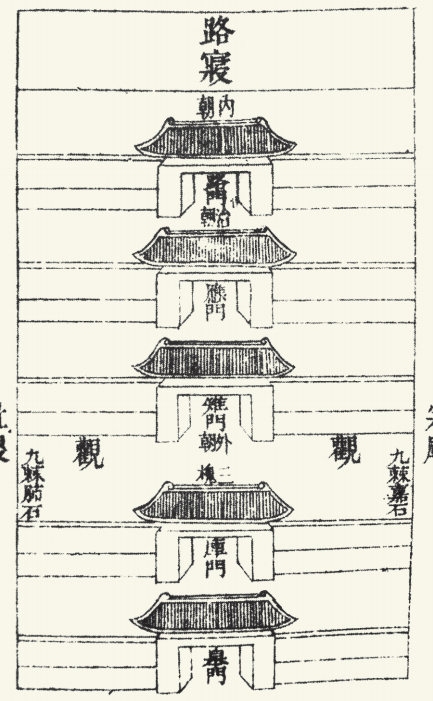 路寢
內朝
路門
治朝
應門
雉門
外朝
觀
觀
三槐
九棘嘉石
九棘肺石
庫門
皋門